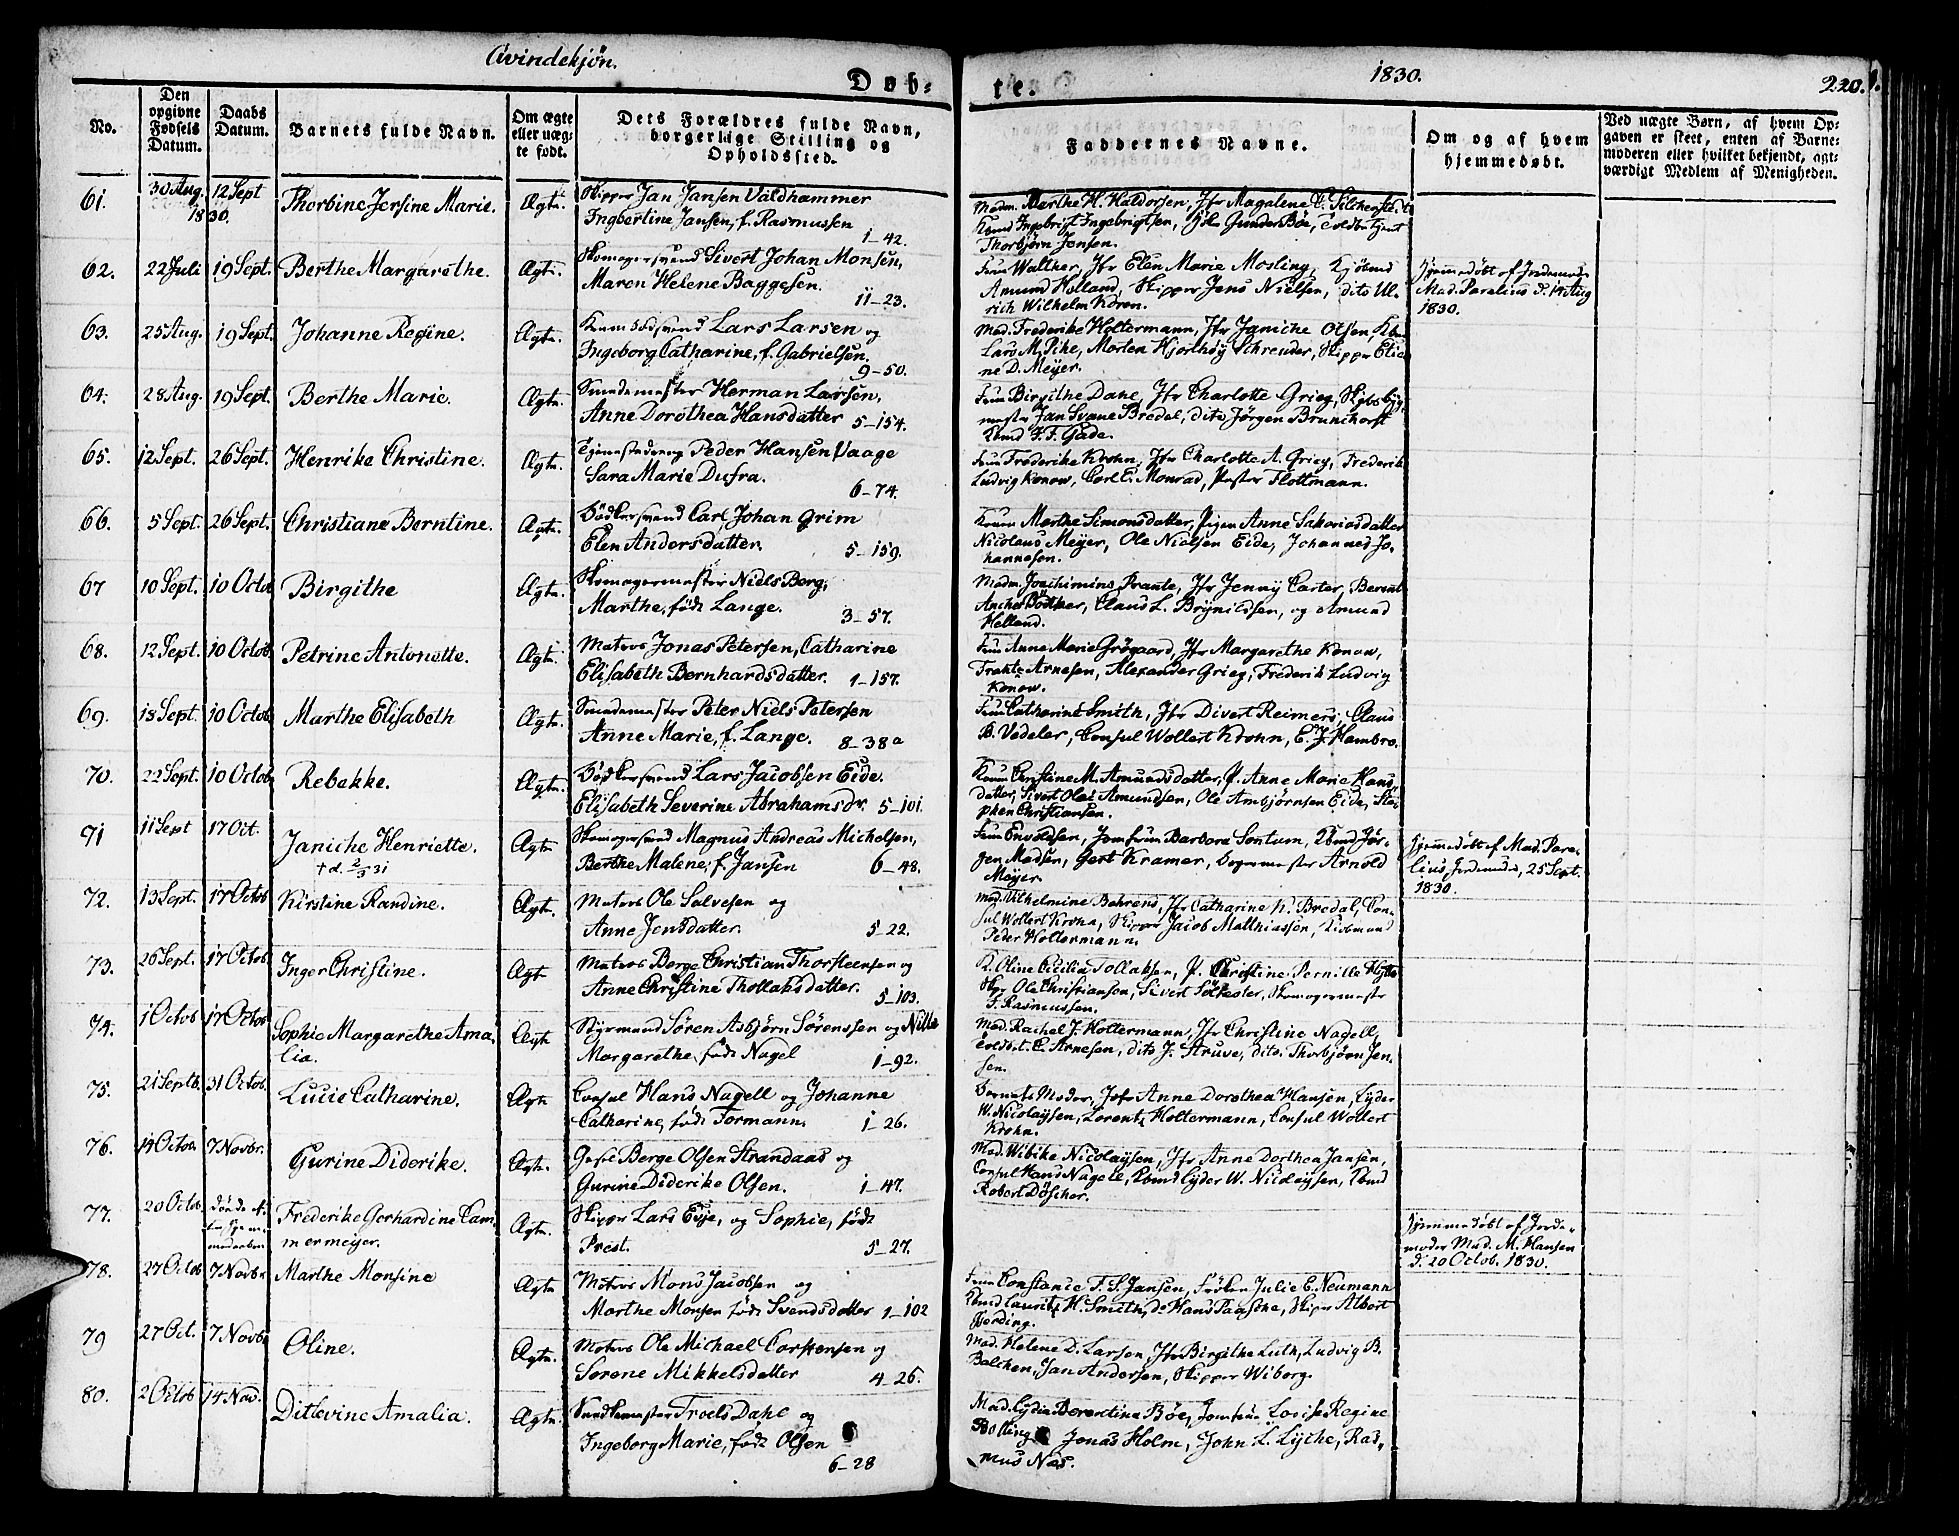 Qvindekjøn.
Døb-
te.
1830.
220.
No.
Den opgivne Fødsels Datum.
Daabs Datum.
Barnets fulde Navn.
Om ægte eller uægte født.
Dets Forældres fulde Navn, borgerlige Stilling og Opholdssted.
Faddernes Navne.
Om og af hvem hjemmedøbt.
Ved uægte Børn, af hvem Opgaven er skeet, enten af Barnemoderen eller hvilket bekjendt, agtværdigt Medlem af Menigheden.
61. 30 Aug. 1830. 12 Sept Thorbine Jensine Marie. Ægte. Skipper Jan Jansen Valdhammer
Ingbertine Jansen, f. Rasmussen 1-42.
Madm. Berthe H. Haldorsen, Jfr Magalene
Ingebrigt Ingebrigtsen, Gunder Böe, Toldbetjent
Thorbjörn Jensen.
62. 22 Juli 19 Sept. Berthe Margarethe. Ægte. Skomagersvend Sivert Johan Monsen,
Maren Helene Baggesen. 11-23.
Frue Walther, Jfr Elen Marie Mosling, Kjöbmd
Amund Helland, Skipper Jens Nielsen, dito Ul-
rich Wilhelm Koren.
Hjemmedöbt af Jordemoder
Mad. Paralius d. 14 Aug
1830.
63. 25 Aug. 19 Sept. Johanne Regine. Ægte. Lars Larsen og
Ingeborg Catharine, f. Gabrielsen. 9-50.
Mad. Frederike Holtermann, Jfr Janiche Olsen,
Lars M. Pihe, Morten Hjorthöy Schreuder, Skipper Elia-
ne D. Meyer.
64. 28 Aug. 19 Sept. Berthe Marie. Ægte. Smedemester Herman Larsen,
Anne Dorothea Hansdatter 5-154.
Frue Birgithe Dahl, Jfr Charlotte Grieg, Skibsbyg-
mester Jan Svane Bredal, dito Jörgen Brunchorst
Kbmd F. F. Gade.
65. 12 Sept. 26 Sept. Henrike Christine. Ægte. Peder Hansen Vaage
Sara Marie Dufra. 6-74.
Frue Frederike Krohn, Jfr Charlotte A. Grieg, Frederik
Ludvig Konow, Carl C. Monrad, Flottmann.
66. 5 Sept. 26 Sept. Christiane Berntine. Ægte. Bödkersvend Carl Johan Grim
Elen Andersdatter. 5-159.
Konen Marthe Simonsdatter, Pigen Anne Sakariasdatter
Nicolaus Meyer, Ole Nielsen Eide, Johannes Jo-
hannesen.
67 10 Sept. 10 Octo Birgithe Ægte. Skomagermester Niels Berg,
Marthe, födt Lange. 3-57.
Madm. Joachimine Prante, Jfr Jenny Carter, Berent
Ancher Bödtker, Claus L. Brynildsen, og Amund
Helland.
68. 12 Sept. 10 Octob. Petrine Antonette. Ægte. Matros Jonas Petersen, Catharine
Elisabeth Bernhardsdatter. 1-157.
Frue Anne Marie Grögaard, Jfr Margarethe Konow,
Arnesen, Alexander Grieg, Frederik Ludvig
Konow.
69. 18 Sept. 10 Octob. Marthe Elisabeth Ægte. Smedemester Peter Niels Petersen
Anne Marie, f. Lange. 8-38a
Frue Catharine Smith, Jfr Divert Reimers, Claus
B. Vedeler, Consul Wollert Krohn, E. J. Hambro.
70. 22 Sept. 10 Octob. Rebekke. Ægte. Bödkersvend Lars Jacobsen Eide.
Elisabeth Severine Abrahamsdr. 5-101.
Konen Christine M. Amundsdatter, P. Anne Marie Hans-
datter, Sivert Olai Amundsen, Ole Ambjörnsen Eide, Ste-
phen Christiansen.
71 11 Sept 17 Oct. Janiche Henriette. Ægte Skomagersvend Magnus Andreas Michelsen,
† d. 2/5 31
Berthe Malene, f. Jansen 6-48.
Frue Enoldsen, Jomfrue Barbara Sontum, Kbmd Jör-
gen Madsen, Gert Kramer, Bagermester Arnold
Meyer
Hjemmedöbt af Mad. Para-
lius, Jordemoder, 25 Sept.
1830.
72. 13 Sept. 17 Octob Kirstine Randine. Ægte. Matros Ole Salvesen og
Anne Jensdatter. 5-22.
Mad. Vilhelmine Behrens, Jfr Catharine K. Bredal, Con-
sul Wollert Krohn, Skipper Jacob Matthiassen, Kiöbmand
Peder Holtermann.
73. 26 Sept. 17 Octob Inger Christine. Ægte Matros Berge Christian Thorsteensen og
Anne Christine Thollaksdatter. 5-103.
K. Oline Cicilia Tollaksen, P. Christine Pernille
Ole Christiansen, Sivert Sölvester, Skomagermester
F. Rasmussen.
74. 1 Octob 17 Octob. Sophie Margarethe Ama-
lia. Ægte Styrmand Sören Asbjörn Sörenssen og Nille
Margarethe, födt Nagel 1-92.
Mad. Rachel J. Holtermann, Jfr Christine Nagell,
Toldbet. C. Arnesen, dito J. Struve, dito. Thorbjörn Jen-
sen.
75. 21 Septb. 31 Octob. Lucie Catharine. Ægte Consul Hans Nagell og Johanne
Catharine, födt Formann. 1-26.
Barnets Moder, Jfr Anne Dorothea Hansen, Lyder
W. Nicolaysen, Lorentz Holtermann, Consul Wollert
Krohn.
76. 14 Octob. 7 Novbr. Gurine Diderike. Ægte. Berge Olsen Strandaas og
Gurine Diderike Olsen. 1-47.
Mad. Wibike Nicolaysen, Jfr Anne Dorthea Jansen,
Consul Hans Nagell, Kbmd Lyder W. Nicolaysen, Kbmd
Robert Döscher.
77. 20 Octob. Frederike Gerhardine Cam-
mermeyer. Ægte. Skipper Lars Edje, og Sophie, födt
Prest. 5-27.
Hjemmedöbt af Jorde-
moder Mad. M. Hansen
d. 20 Octob. 1830.
78. 27 Octob 7 Novbr Marthe Monsine Ægte Matros Mons Jacobsen og
Marthe Monsen födt Svendsdatter 1-102
Frue Constance F. S. Jansen, Fröken Julie E. Neumann
Kbmd Lauritz H. Smith, do Hans Paasche, Skipper Albert
79 27 Oct. 7 Novbr Oline. Ægte. Matros Ole Michael Carstensen og
Serene Mikkelsdatter 4-26.
Mad. Helene D. Larsen, Jfr Birgithe Luth, Ludvig B.
Balchen, Jan Andersen, Skipper Wiberg.
80. 2 Octob 14 Nov. Ditlevine Amalia. Ægte. Troels Dahl og
Ingeborg Marie, födt Olsen 6-28
Mad. Lydia Berentine Böe, Jomfrue Lovise Regine
Bolling Jonas Holm, John L. Lythe, Ras-
mus Nas.